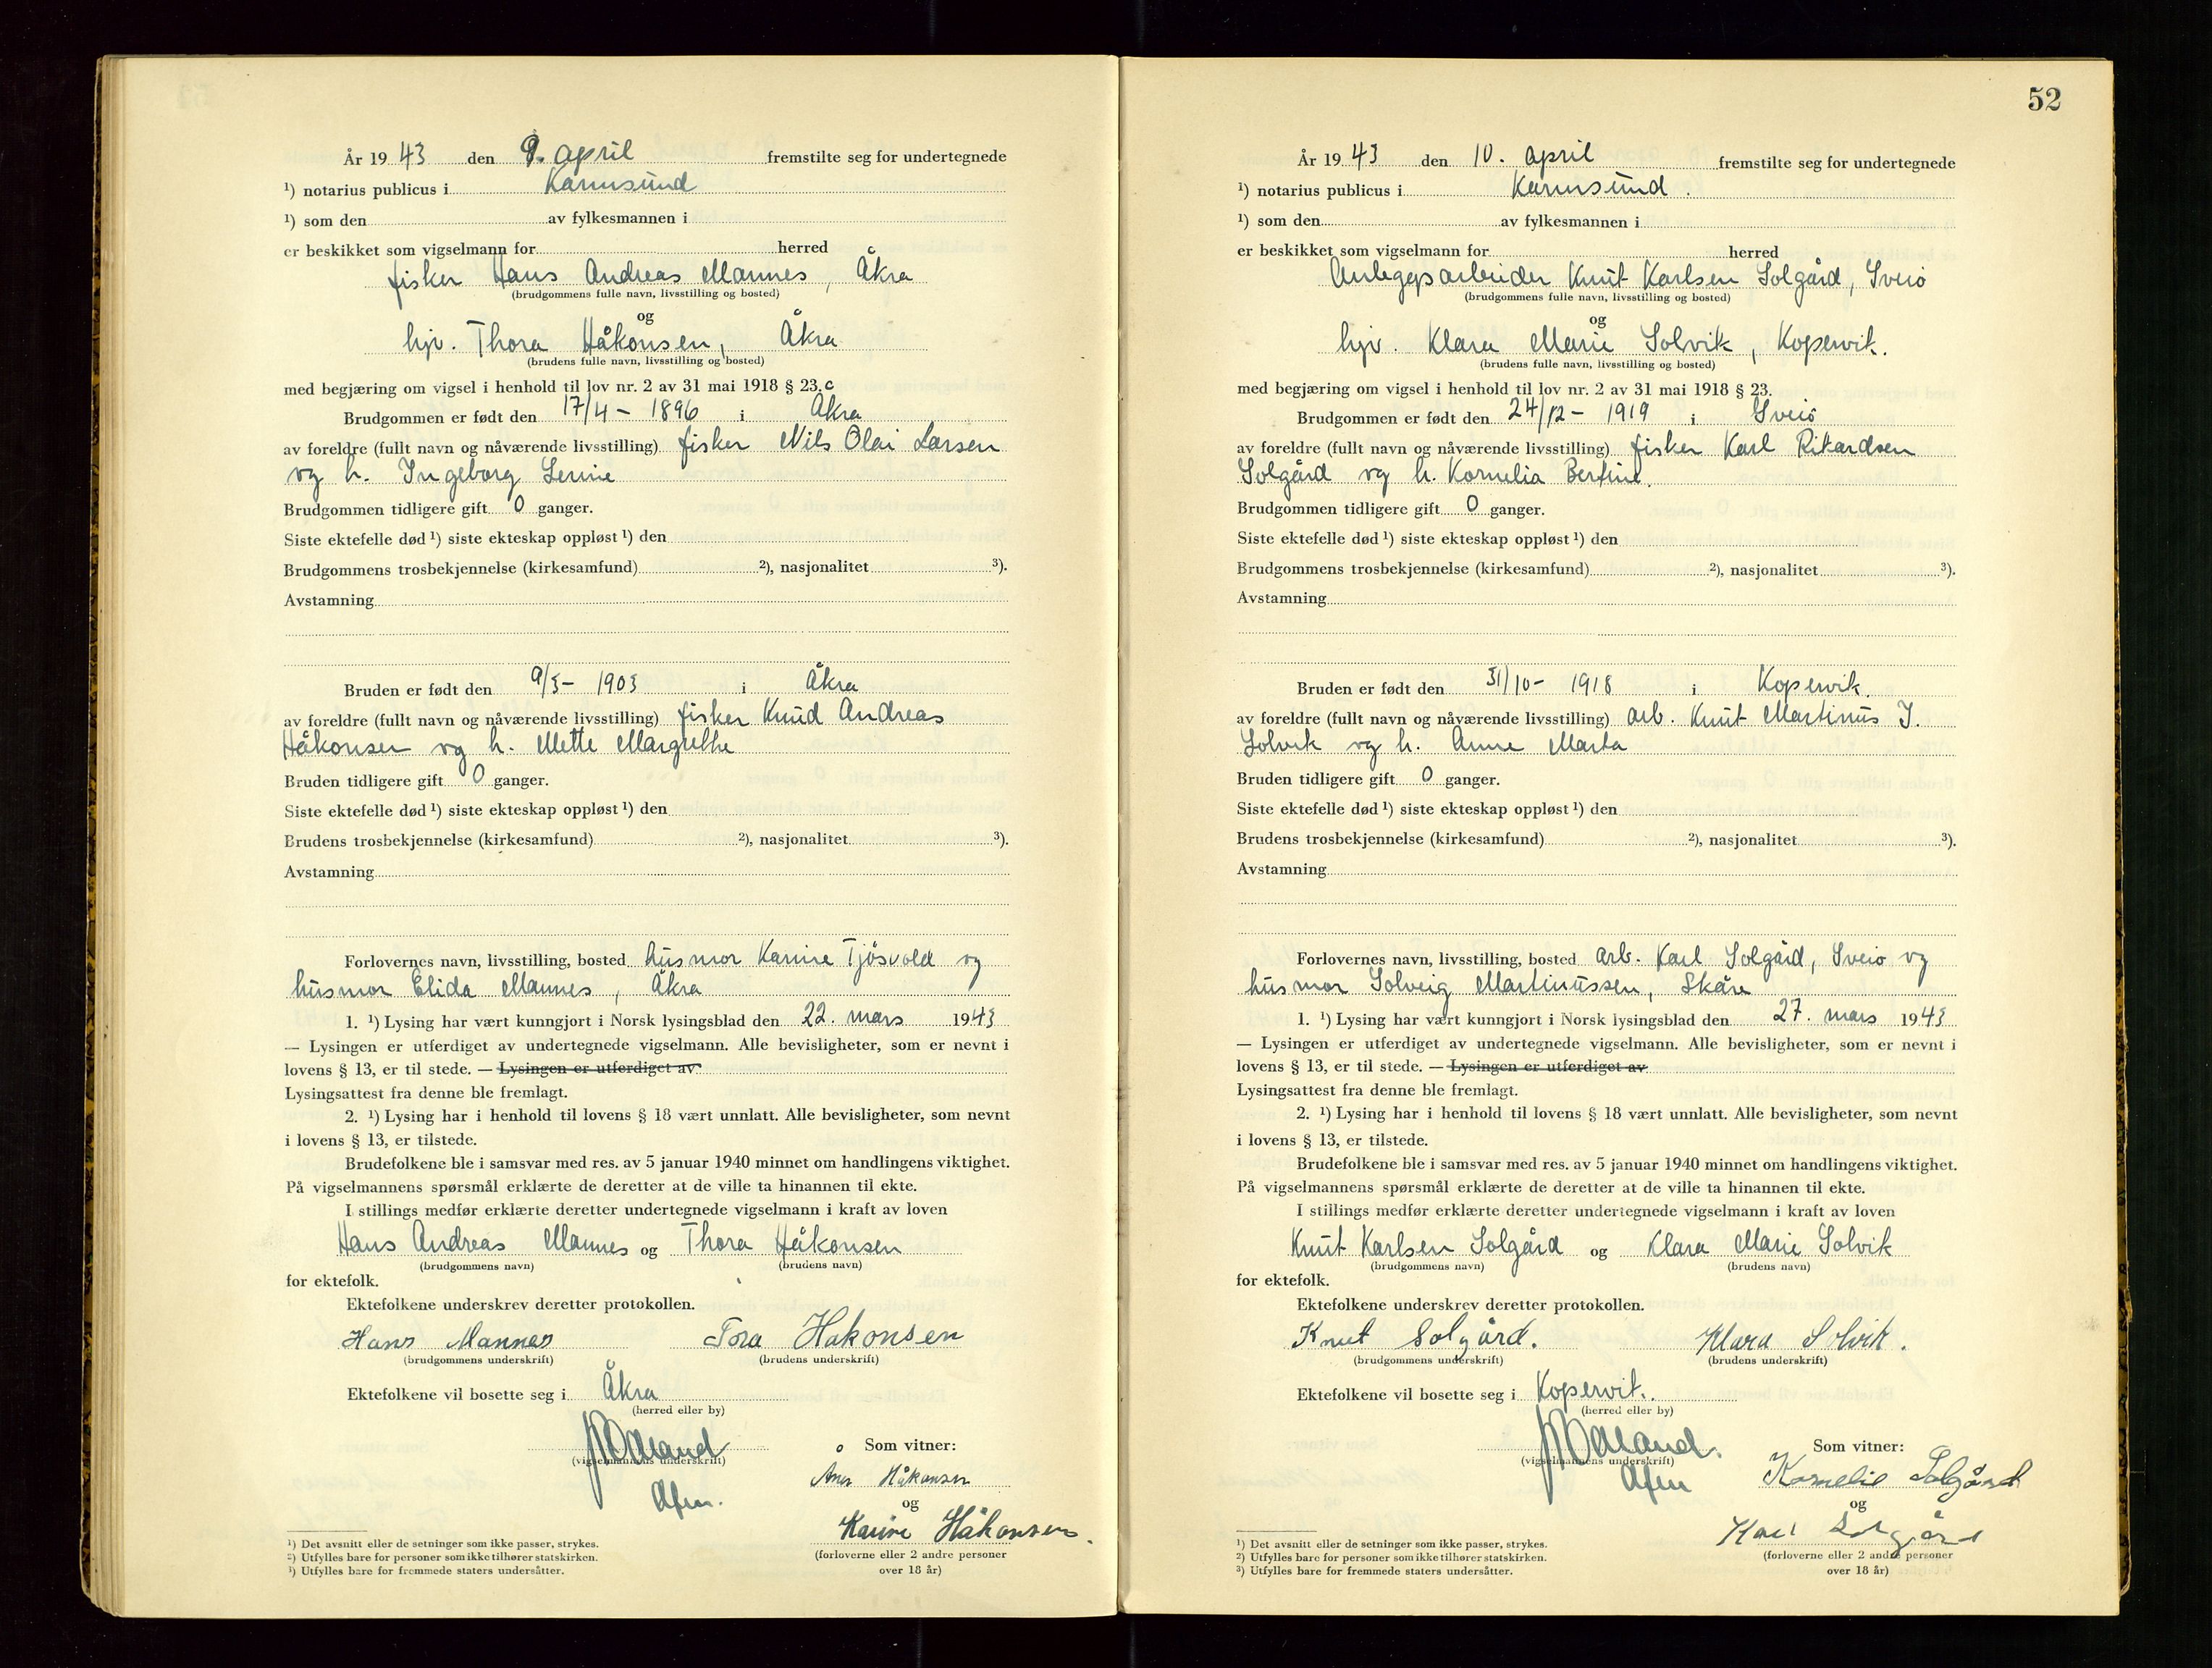 År 1943 den 9. april fremstilte seg for undertegnede
¹) notarius publicus i Karmsund
¹) som den av fylkesmannen i
er beskikket som vigselmann for herred
fisker Hans Andreas Mannes, Åkra
(brudgommens fulle navn, livsstilling og bosted)
og
hjv. Thora Håkonsen, Åkra
(brudens fulle navn, livsstilling og bosted)
med begjæring om vigsel i henhold til lov nr. 2 av 31 mai 1918 § 23.
Brudgommen er født den 17/4 - 1896 i Åkra
av foreldre (fullt navn og nåværende livsstilling) fisker Nils Olai Larsen
og h. Ingeborg Serine
Brudgommen tidligere gift 0 ganger.
Siste ektefelle død ¹) siste ekteskap oppløst ¹) den
Brudgommens trosbekjennelse (kirkesamfund) ²), nasjonalitet ³).
Avstamning
Bruden er født den 9/3 - 1903 i Åkra
av foreldre (fullt navn og nåværende livsstilling) fisker Knud Andreas
Håkonsen og h. Mette Margrethe
Bruden tidligere gift 0 ganger.
Siste ektefelle død ¹) siste ekteskap oppløst ¹) den
Brudens trosbekjennelse (kirkesamfund) ²), nasjonalitet ³).
Avstamning
Forlovernes navn, livsstilling, bosted husmor Karine Tjøsvold og
husmor Elida Mannes, Åkra
1. ¹) Lysing har vært kunngjort i Norsk lysingsblad den 22. mars 1943
— Lysingen er utferdiget av undertegnede vigselmann. Alle bevisligheter, som er nevnt i
lovens § 13, er til stede. — Lysingen er utferdiget av
Lysingsattest fra denne ble fremlagt.
2. ¹) Lysing har i henhold til lovens § 18 vært unnlatt. Alle bevisligheter, som nevnt
i lovens § 13, er tilstede.
Brudefolkene ble i samsvar med res. av 5 januar 1940 minnet om handlingens viktighet.
På vigselmannens spørsmål erklærte de deretter at de ville ta hinannen til ekte.
I stillings medfør erklærte deretter undertegnede vigselmann i kraft av loven
Hans Andreas Mannes og Thora Håkonsen
(brudgommens navn) (brudens navn)
for ektefolk.
Ektefolkene underskrev deretter protokollen.
Hans Mannes Tora Håkonsen
(brudgommens underskrift) (brudens underskrift)
Ektefolkene vil bosette seg i Åkra
(herred eller by)
Som vitner:
(vigselmannens underskrift)
Håkonsen
og
Karine Håkonsen.
¹) Det avsnitt eller de setninger som ikke passer, strykes.
²) Utfylles bare for personer som ikke tilhører statskirken.
³) Utfylles bare for fremmede staters undersåtter.
(forloverne eller 2 andre personer
over 18 år)
52
År 1943 den 10. april fremstilte seg for undertegnede
¹) notarius publicus i Karmsund.
¹) som den av fylkesmannen i
er beskikket som vigselmann for herred
Anleggsarbeider Knut Karlsen Solgård, Sveio
(brudgommens fulle navn, livsstilling og bosted)
og
hjv. Klara Marie Solvik, Kopervik.
(brudens fulle navn, livsstilling og bosted)
med begjæring om vigsel i henhold til lov nr. 2 av 31 mai 1918 § 23.
Brudgommen er født den 24/12 - 1919 i Sveio
av foreldre (fullt navn og nåværende livsstilling) fisker Karl Rikardsen
Solgård og h. Kornelia Bertine.
Brudgommen tidligere gift 0 ganger.
Siste ektefelle død ¹) siste ekteskap oppløst ¹) den
Brudgommens trosbekjennelse (kirkesamfund) ²), nasjonalitet ³).
Avstamning
Bruden er født den 31/10 - 1918 i Kopervik.
av foreldre (fullt navn og nåværende livsstilling) arb. Knut Martinus J.
Solvik og h. Anne Marta
Bruden tidligere gift 0 ganger.
Siste ektefelle død ¹) siste ekteskap oppløst ¹) den
Brudens trosbekjennelse (kirkesamfund) ²), nasjonalitet ³).
Avstamning
Forlovernes navn, livsstilling, bosted arb. Karl Solgård, Sveio og
husmor Solveig Martinussen, Skåre
1. ¹) Lysing har vært kunngjort i Norsk lysingsblad den 27. mars 1943
— Lysingen er utferdiget av undertegnede vigselmann. Alle bevisligheter, som er nevnt i
lovens § 13, er til stede. — Lysingen er utferdiget av
Lysingsattest fra denne ble fremlagt.
2. ¹) Lysing har i henhold til lovens § 18 vært unnlatt. Alle bevisligheter, som nevnt
i lovens § 13, er tilstede.
Brudefolkene ble i samsvar med res. av 5 januar 1940 minnet om handlingens viktighet.
På vigselmannens spørsmål erklærte de deretter at de ville ta hinannen til ekte.
I stillings medfør erklærte deretter undertegnede vigselmann i kraft av loven
Knut Karlsen Solgård og Klara Marie Solvik
(brudgommens navn) (brudens navn)
for ektefolk.
Ektefolkene underskrev deretter protokollen.
Knut Solgård. Klara Solvik.
(brudgommens underskrift) (brudens underskrift)
Ektefolkene vil bosette seg i Kopervik.
(herred eller by)
Som vitner:
(vigselmannens underskrift)
Kornelie Solgård
og
Karl Solgård
¹) Det avsnitt eller de setninger som ikke passer, strykes.
²) Utfylles bare for personer som ikke tilhører statskirken.
³) Utfylles bare for fremmede staters undersåtter.
(forloverne eller 2 andre personer
over 18 år)